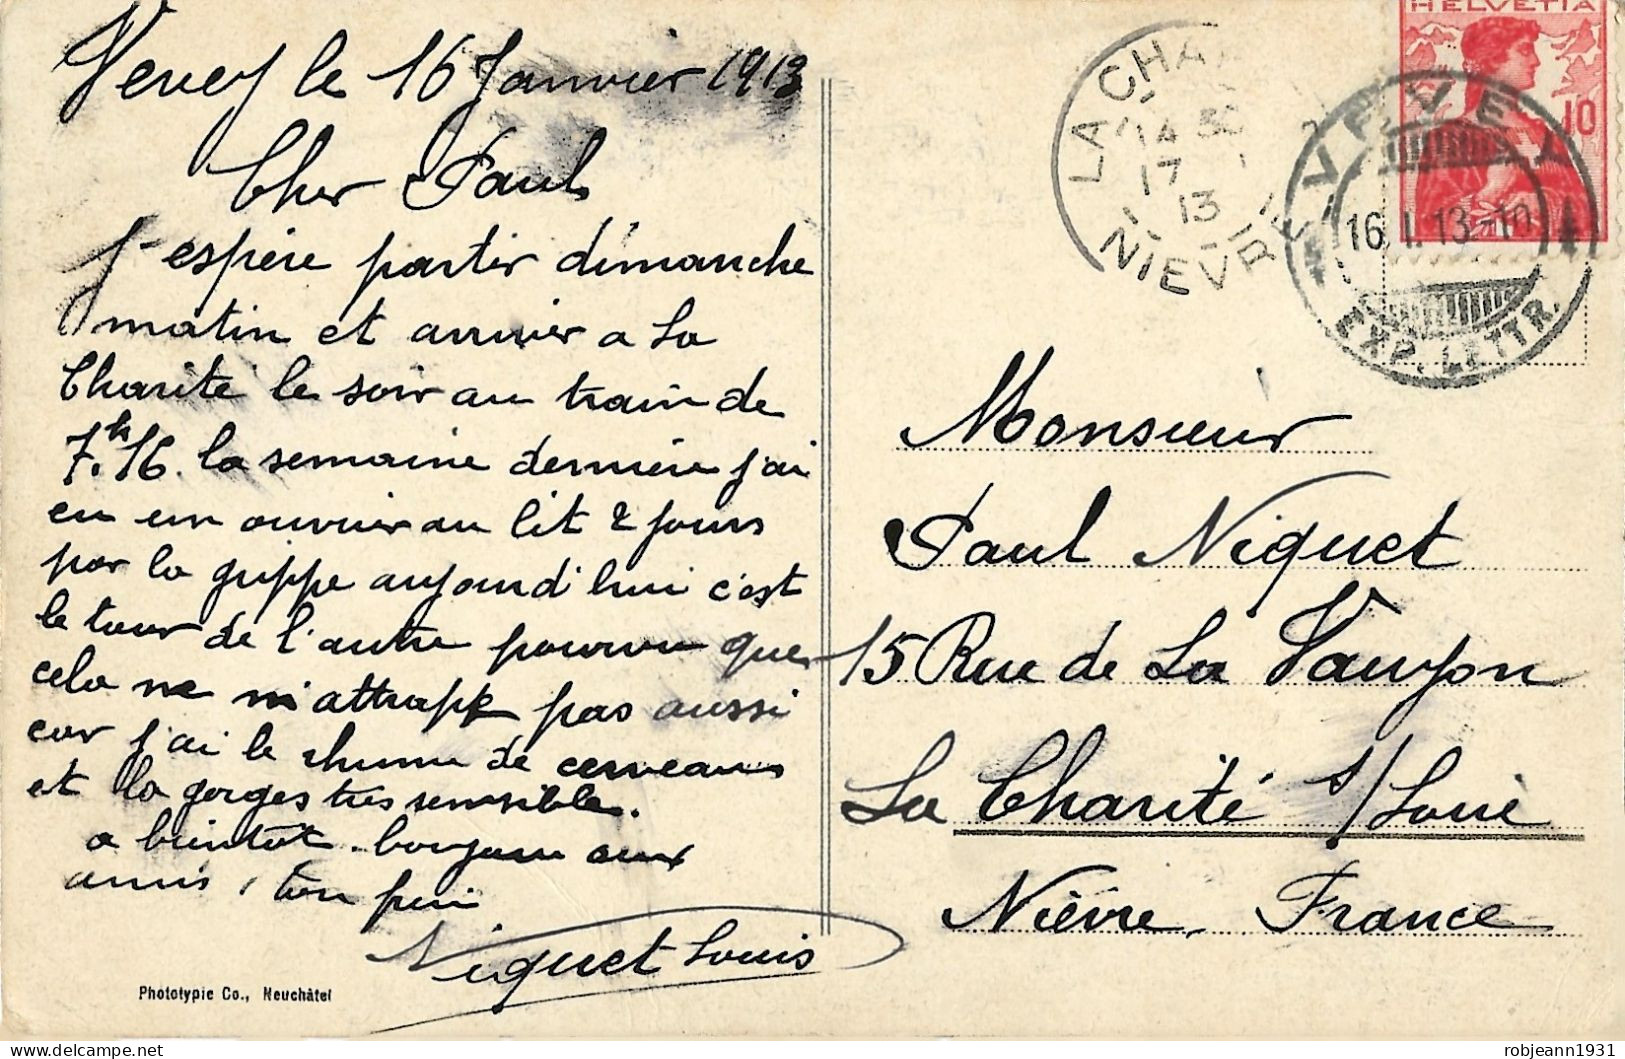 Vevey le 16 Janvier 1913
Cher Paul
J'espère partir démanche
matin et arriver a La
Charité le soir au train de
7h.16. la semaine dernière j'ai
eu un ouvrier au lit 2 jours
par la grippe aujourd'hui c'est
le tour de l'autre pourvu que
cela ne m'attrappe pas aussi
car j'ai le rhume de cerveaux
et la gorges très sensible.
a bientôt. bonjour aux
amis, ton père
Niquet Louis
Phototypie Co., Neuchâtel
HELVETIA
10
LA CHARI
14
17 - 1
13
NIEVRE
VEVEY
16.I.13.-10
EXP. LETTR.
Monsieur
Paul Niquet
15 Rue de La Vauyon
La Charité s/Loire
Nièvre. France
robjeann1931